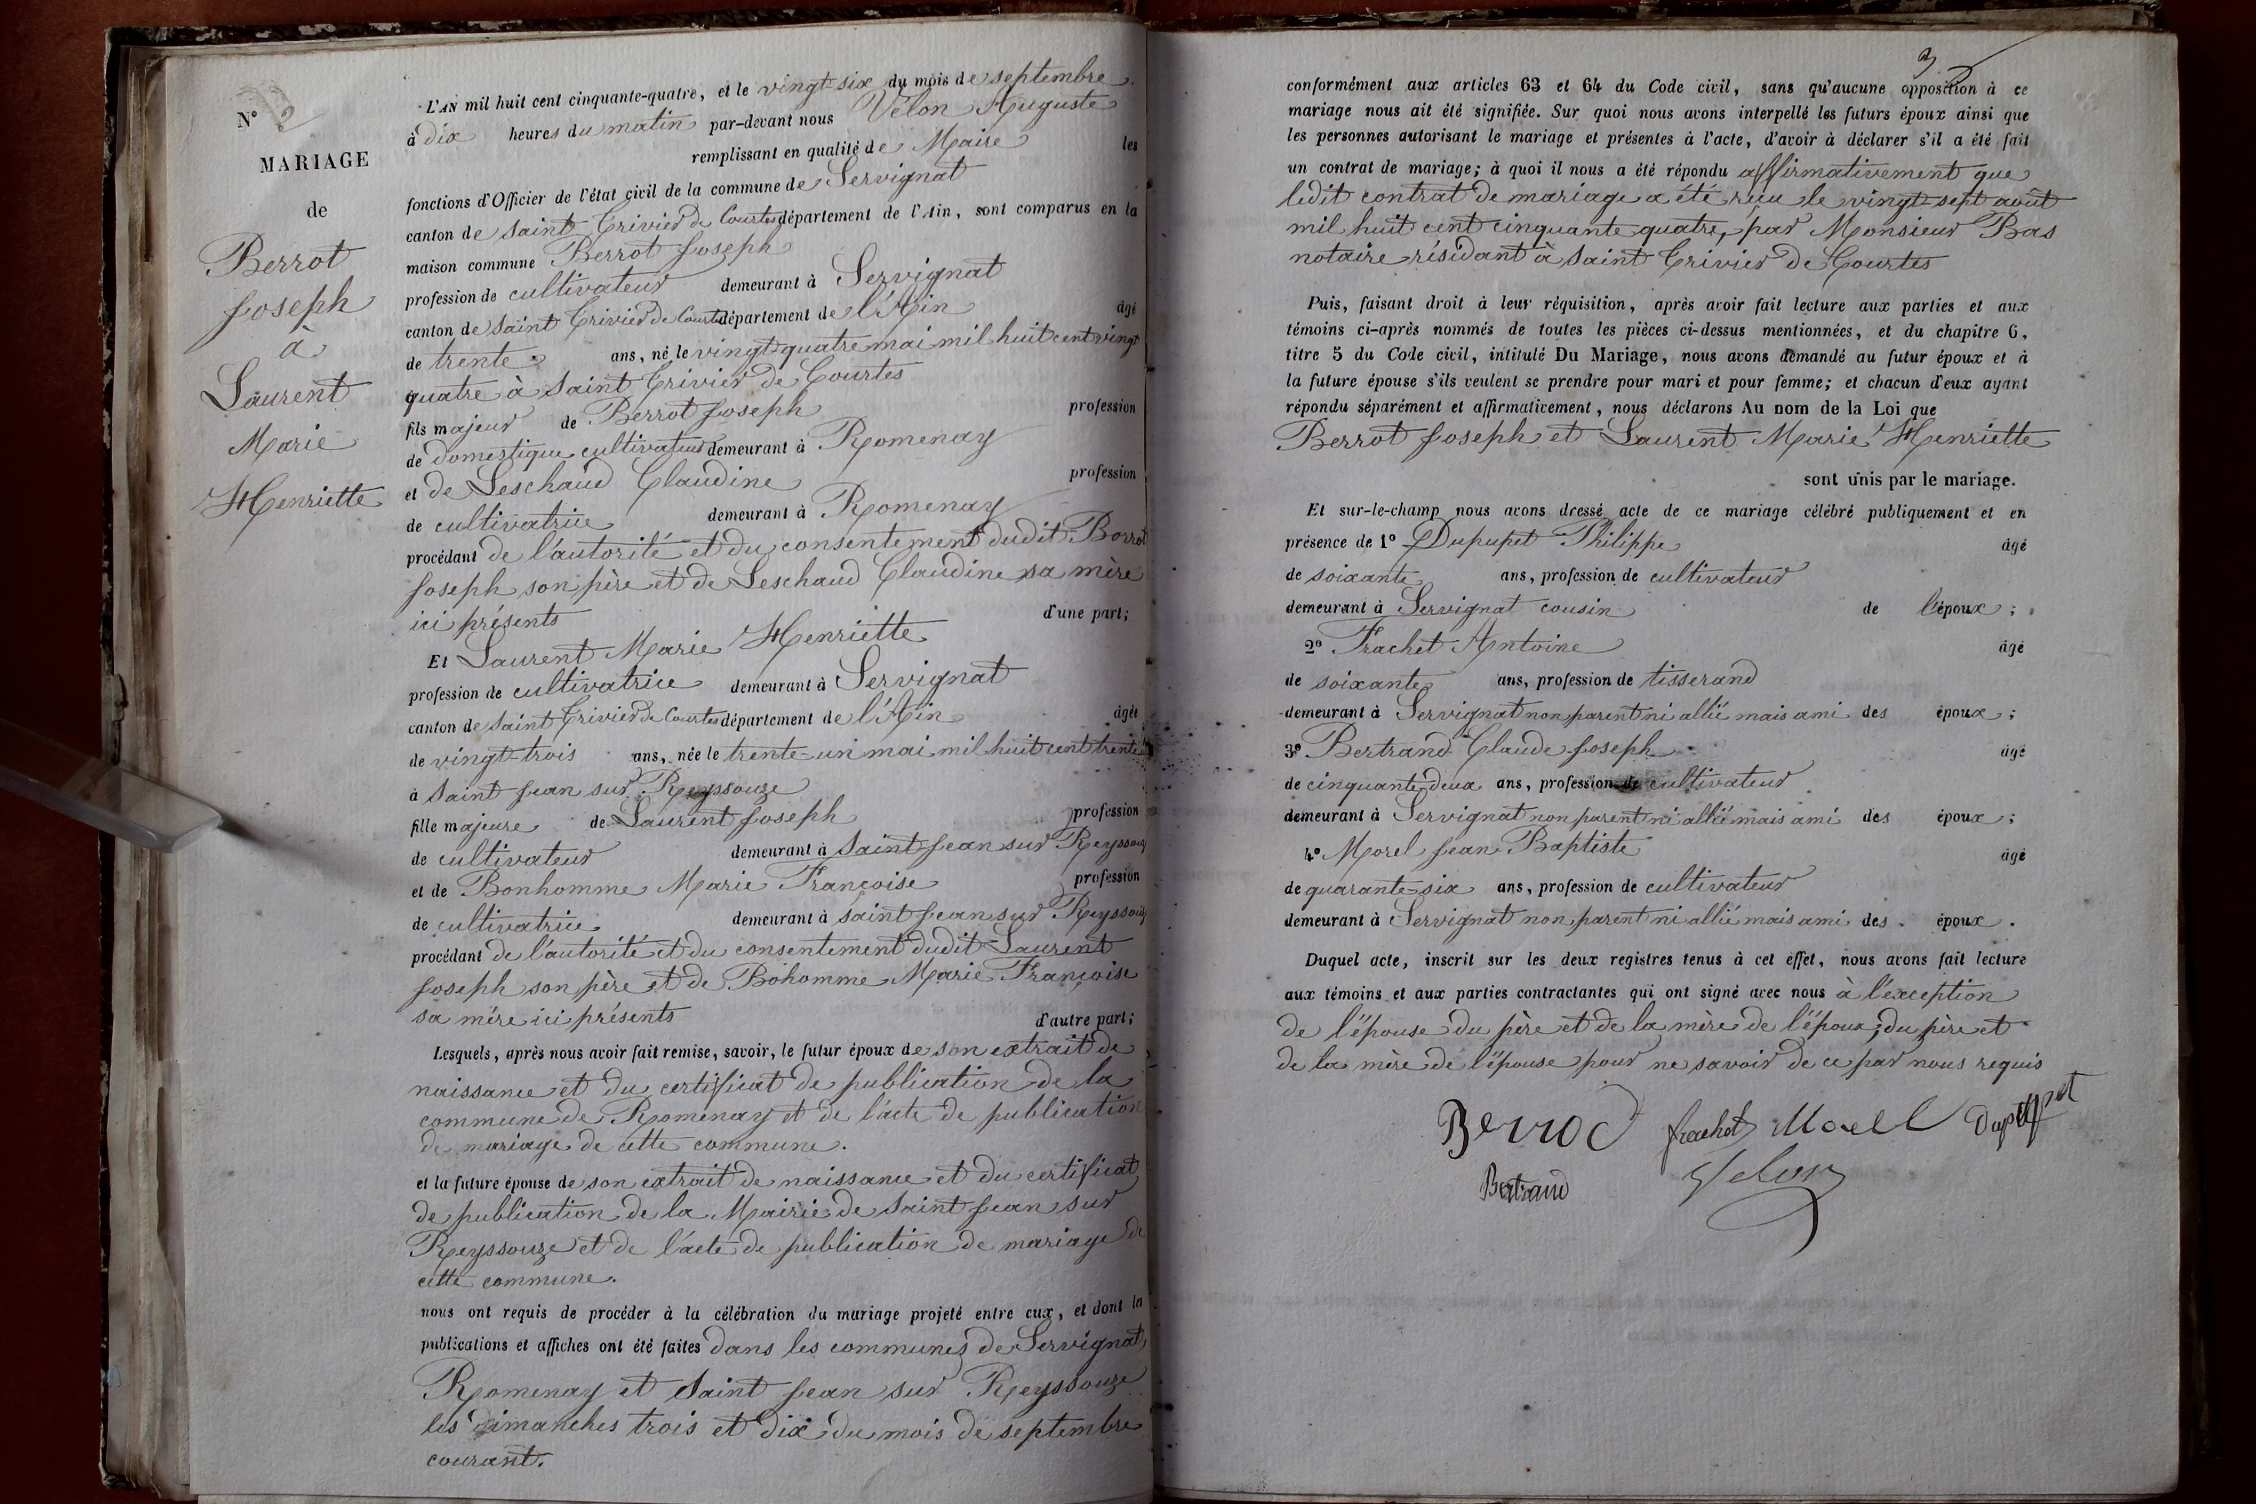 N° 2
MARIAGE
de
Berrot
Joseph
à
Laurent
Marie
Henriette
L'AN mil huit cent cinquante-quatre, et le vingt-six du mois de septembre
à dix heures du matin par-devant nous Vélon Auguste
remplissant en qualité de Maire les
fonctions d'Officier de l'état civil de la commune de Servignat
canton de Saint Trivier de Courtes département de l'Ain, sont comparus en la
maison commune Berrot Joseph
profession de cultivateur demeurant à Servignat
canton de Saint Trivier de Courtes département de l'Ain âgé
de trente ans, né le vingt quatre mai mil huit cent vingt
quatre à Saint Trivier de Courtes
fils majeur de Berrot Joseph profession
de domestique cultivateur demeurant à Romenay
et de Leschaud Claudine profession
de cultivatrice demeurant à Romenay
procédant de l'autorité et du consentement dudit Berrot
Joseph son père et de Leschaud Claudine sa mère
ici présents d'une part;
Et Laurent Marie Henriette
profession de cultivatrice demeurant à Servignat
canton de Saint Trivier de Courtes département de l'Ain âgée
de vingt-trois ans, née le trente-un mai mil huit cent trente
à Saint Jean sur Reyssouze
fille majeure de Laurent Joseph profession
de cultivateur demeurant à Saint Jean sur Reyssouze
et de Bonhomme Marie Françoise profession
de cultivatrice demeurant à Saint Jean sur Reyssouze
procédant de l'autorité et du consentement dudit Laurent
Joseph son père et de Bohomme Marie Françoise
sa mère ici présents d'autre part;
Lesquels, après nous avoir fait remise, savoir, le futur époux de son extrait de
naissance et du certificat de publication de la
commune de Romenay et de l'acte de publication
de mariage de cette commune.
et la future épouse de son extrait de naissance et du certificat
de publication de la Mairie de Saint Jean sur
Reyssouze et de l'acte de publication de mariage de
cette commune.
nous ont requis de procéder à la célébration du mariage projeté entre eux, et dont la
publications et affiches ont été faites dans les communes de Servignat,
Romenay et Saint Jean sur Reyssouze
les dimanches trois et dix du mois de septembre
courant.
3
conformément aux articles 63 et 64 du Code civil, sans qu'aucune opposition à ce
mariage nous ait été signifiée. Sur quoi nous avons interpellé les futurs époux ainsi que
les personnes autorisant le mariage et présentes à l'acte, d'avoir à déclarer s'il a été fait
un contrat de mariage; à quoi il nous a été répondu affirmativement que
ledit contrat de mariage a été reçu le vingt-sept août
mil huit cent cinquante quatre, par Monsieur Bas
notaire résidant à Saint Trivier de Courtes
Puis, faisant droit à leur réquisition, après avoir fait lecture aux parties et aux
témoins ci-après nommés de toutes les pièces ci-dessus mentionnées, et du chapitre 6,
titre 5 du Code civil, intitulé Du Mariage, nous avons demandé au futur époux et à
la future épouse s'ils veulent se prendre pour mari et pour femme; et chacun d'eux ayant
répondu séparément et affirmativement, nous déclarons Au nom de la Loi que
Berrot Joseph et Laurent Marie Henriette
sont unis par le mariage.
Et sur-le-champ nous avons dressé acte de ce mariage célébré publiquement et en
présence de 1° Dupupet Philippe âgé
de soixante ans, profession de cultivateur
demeurant à Servignat cousin de l'époux;
2° Frachet Antoine âgé
de soixante ans, profession de tisserand
demeurant à Servignat non parent ni allié mais ami des époux;
3° Bertrand Claude Joseph âgé
de cinquante-deux ans, profession de cultivateur
demeurant à Servignat non parent ni allié mais ami des époux;
4° Morel Jean Baptiste âgé
de quarante-six ans, profession de cultivateur
demeurant à Servignat non parent ni allié mais ami des époux.
Duquel acte, inscrit sur les deux registres tenus à cet effet, nous avons fait lecture
aux témoins et aux parties contractantes qui ont signé avec nous à l'exception
de l'épouse du père et de la mère de l'époux, du père et
de la mère de l'épouse pour ne savoir de ce par nous requis
Berrod frachet Morel Dupuppet
Bertrand Velon